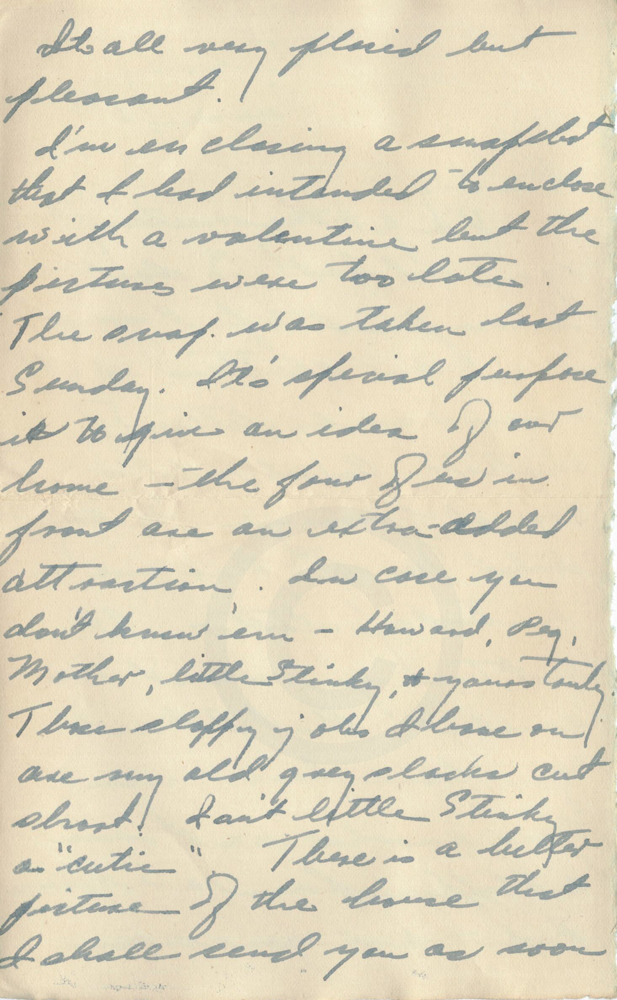 It's all very placid but
pleasant.
I'm enclosing a snapshot
that I had intended to enclose
with a valentine but the
pictures were too late.
The snap. was taken last
Sunday. It's special purpose
is to give an idea of our
home – the four of us in
front are an extra-added
attraction. In case you
don't know 'em – Howard, Peg,
Mother, little Stinky, & yours truly.
Those sloppy jobs I have on
are my old grey slacks cut
short! Isn't little Stinky
a "cutie". There is a better
picture of the house that
I shall send you as soon